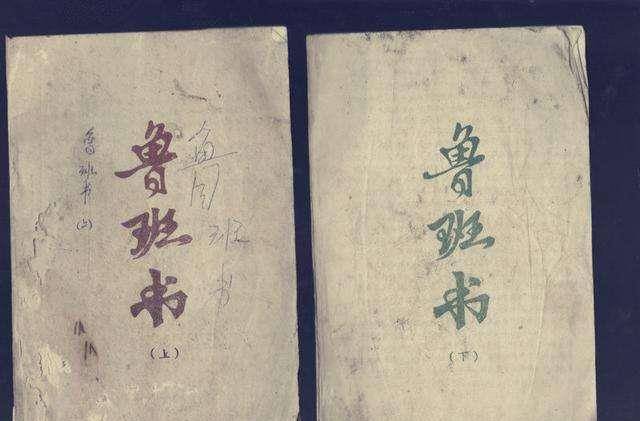 鲁班书
鲁班书
(上)
鲁班书
(上)
鲁班书
(下)